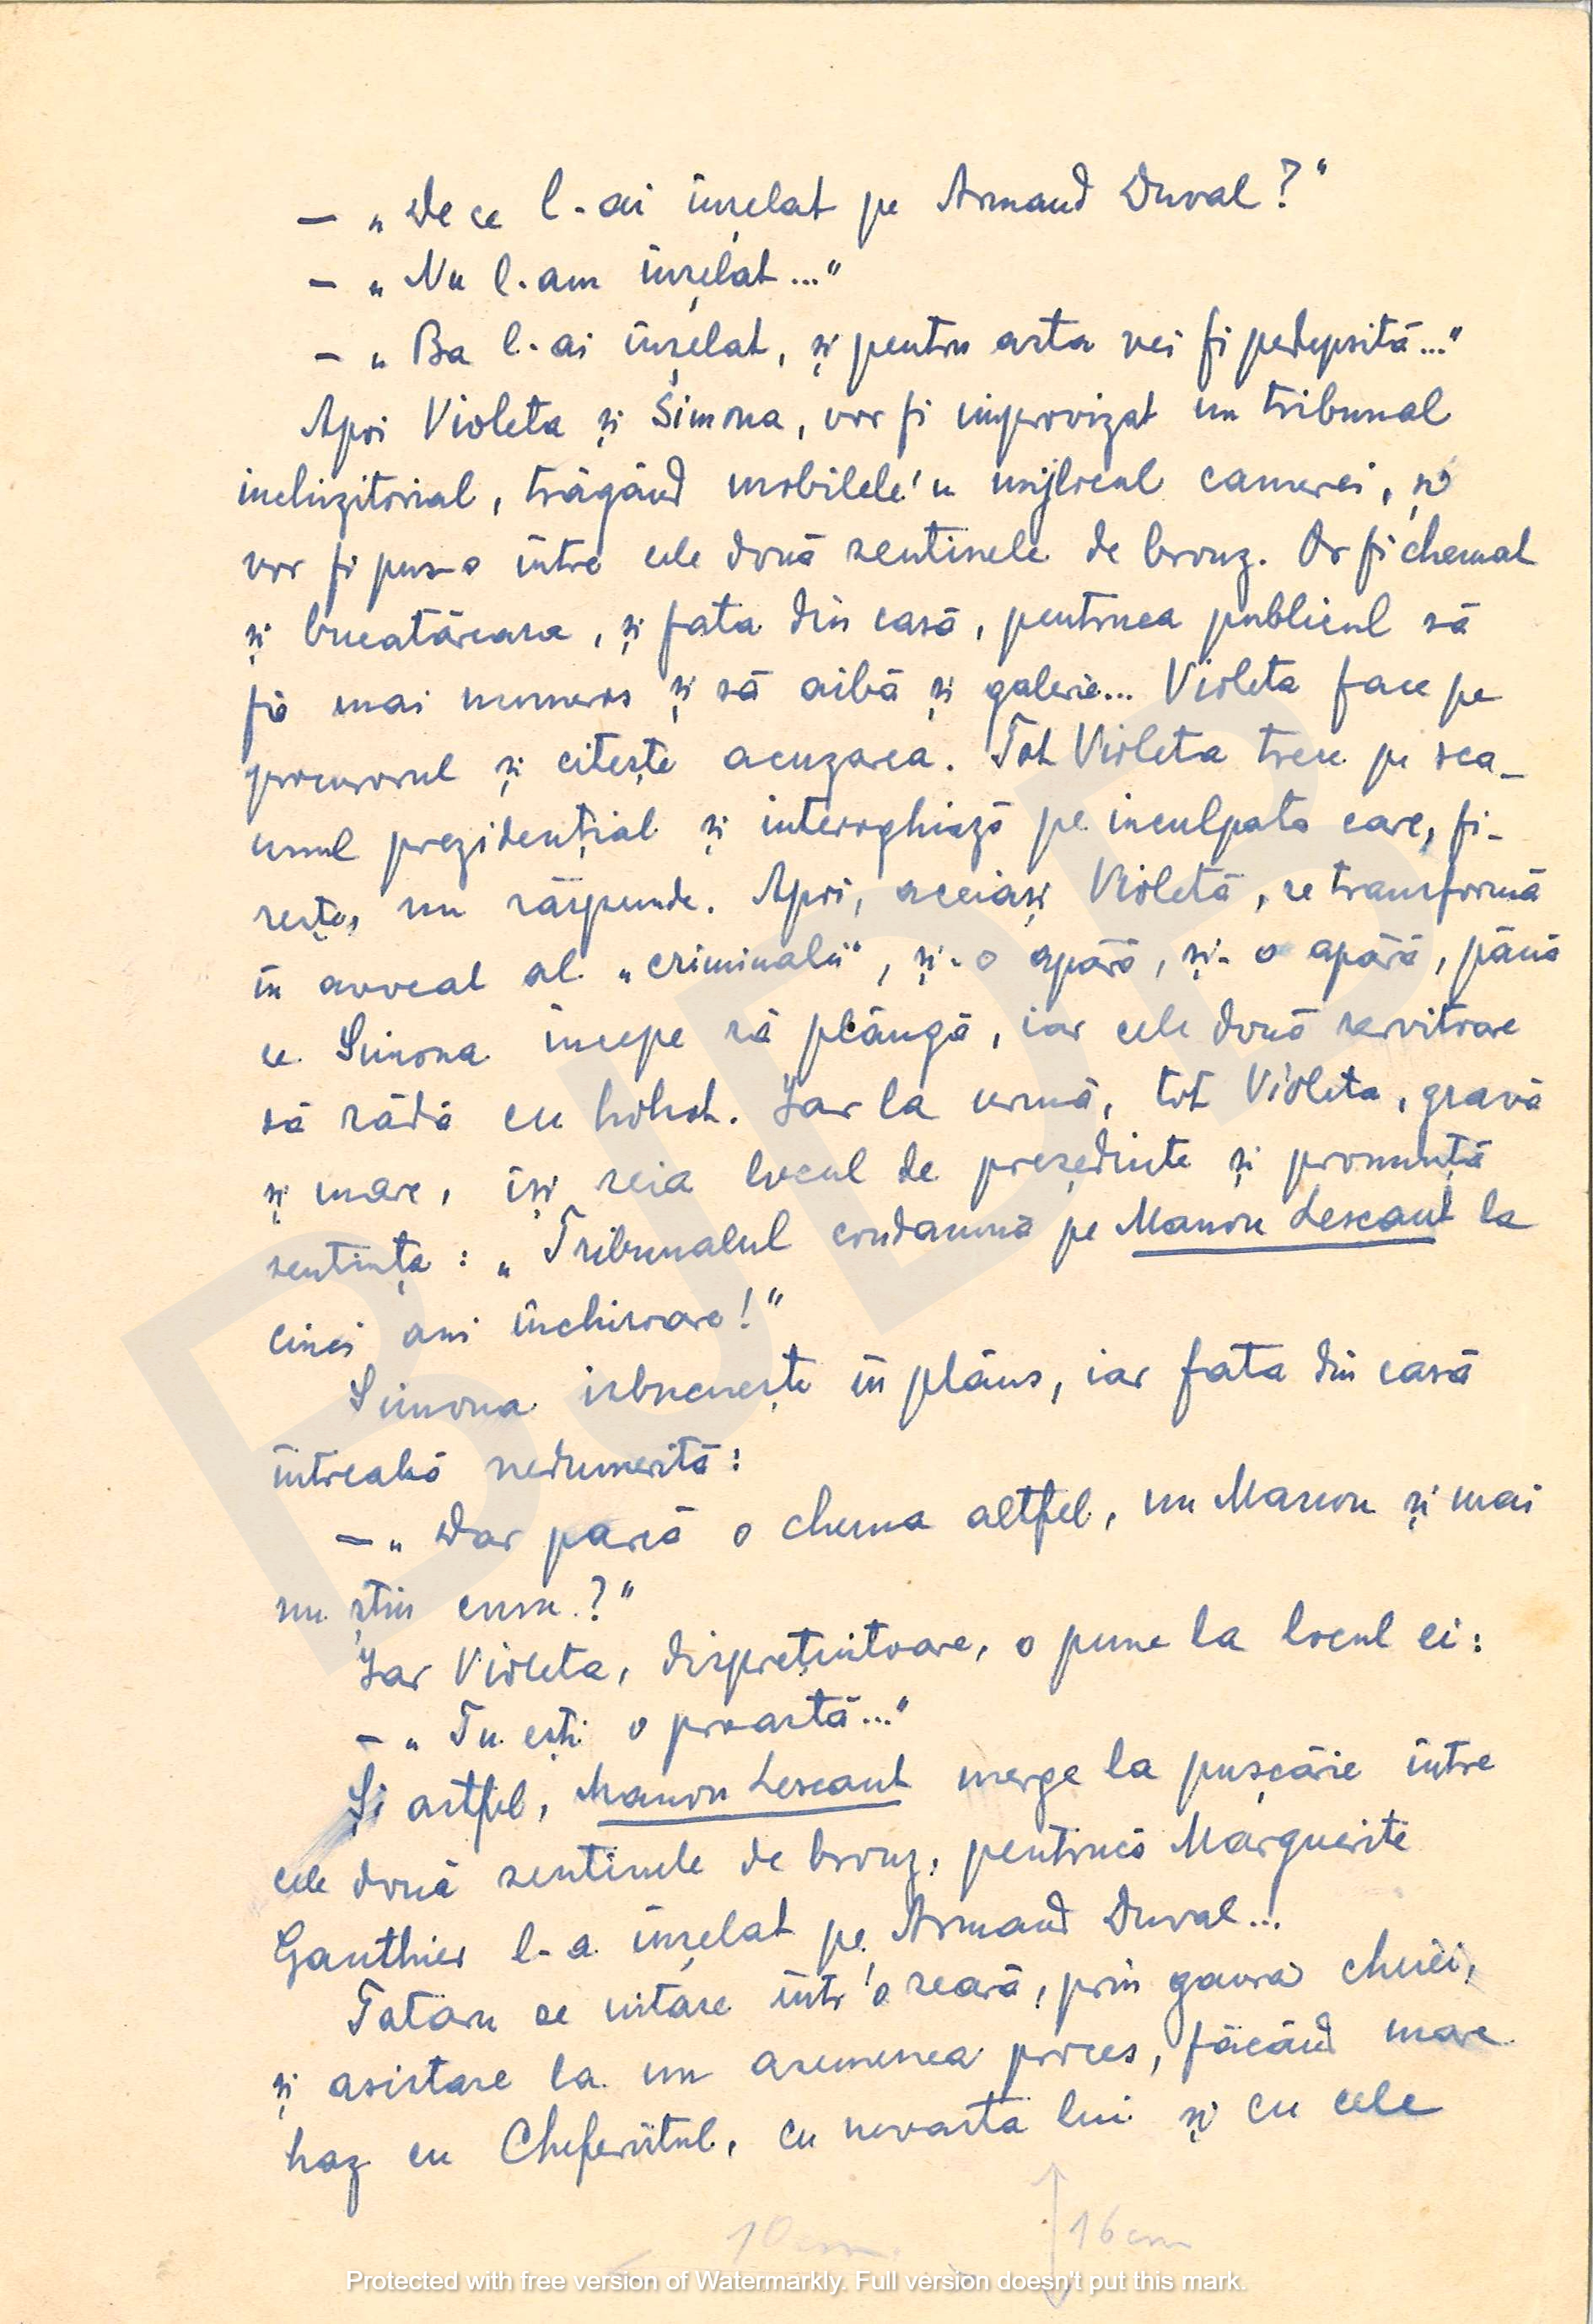 — „De ce l-ai înșelat pe Armand Duval?"
— „Nu l-am înșelat..."
— „Ba l-ai înșelat, și pentru asta vei fi pedepsită..."
Apoi Violeta și Simona, vor fi improvizat un tribunal
inchizitorial, trăgând mobilele'n mijlocul camerei, și
vor fi pus-o între cele două sentinele de bronz. Or fi chemat
și bucatăreasa, și fata din casă, pentruca publicul să
fie mai numeros și să aibă și galerie... Violeta face pe
procurorul și citește acuzarea. Tot Violeta trece pe sca-
unul prezidențial și interoghiază pe inculpata care, fi-
rește, nu răspunde. Apoi, aceiași Violetă, se transformă
în avocat al „criminalii", și-o apără, și-o apără, până
ce Simona începe să plângă, iar cele două servitoare
să râdă cu hohot. Iar la urmă, tot Violeta, gravă
și mare, își reia locul de președinte și pronunță
sentința: „Tribunalul condamnă pe Manon Lescaut la
cinci ani închisoare!"
Simona isbucnește în plâns, iar fata din casă
întreabă nedumerită:
— „Dar parcă o chema altfel, nu Manon și mai
nu știu cum?"
Iar Violeta, disprețuitoare, o pune la locul ei:
— „Tu ești o proastă..."
Și astfel, Manon Lescaut merge la pușcărie între
cele două sentinele de bronz, pentrucă Marguerite
Gauthier l-a înșelat pe Armand Duval...
Tataru se uitase într'o seară, prin gaura cheii,
și asistase la un asemenea proces, făcând mare
haz cu Cheferistul, cu nevasta lui și cu cele
10 cm
16 cm
BJDB
Protected with free version of Watermarkly. Full version doesn't put this mark.